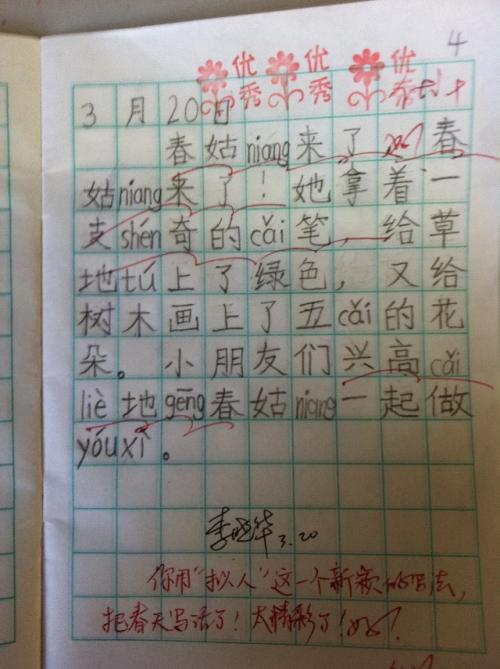 4
优秀 优秀 优秀
3月20日
春姑niang来了 春
姑niang来了！她拿着一
支shén奇的cǎi笔，给草
地tú上了绿色，又给
树木画上了五cǎi的花
朵。小朋友们兴高cǎi
liè地gēng春姑niang一起做
yóuxì。
李晓华 3.20
你用“拟人”这一个新颖的写法，
把春天写活了！太精彩了！